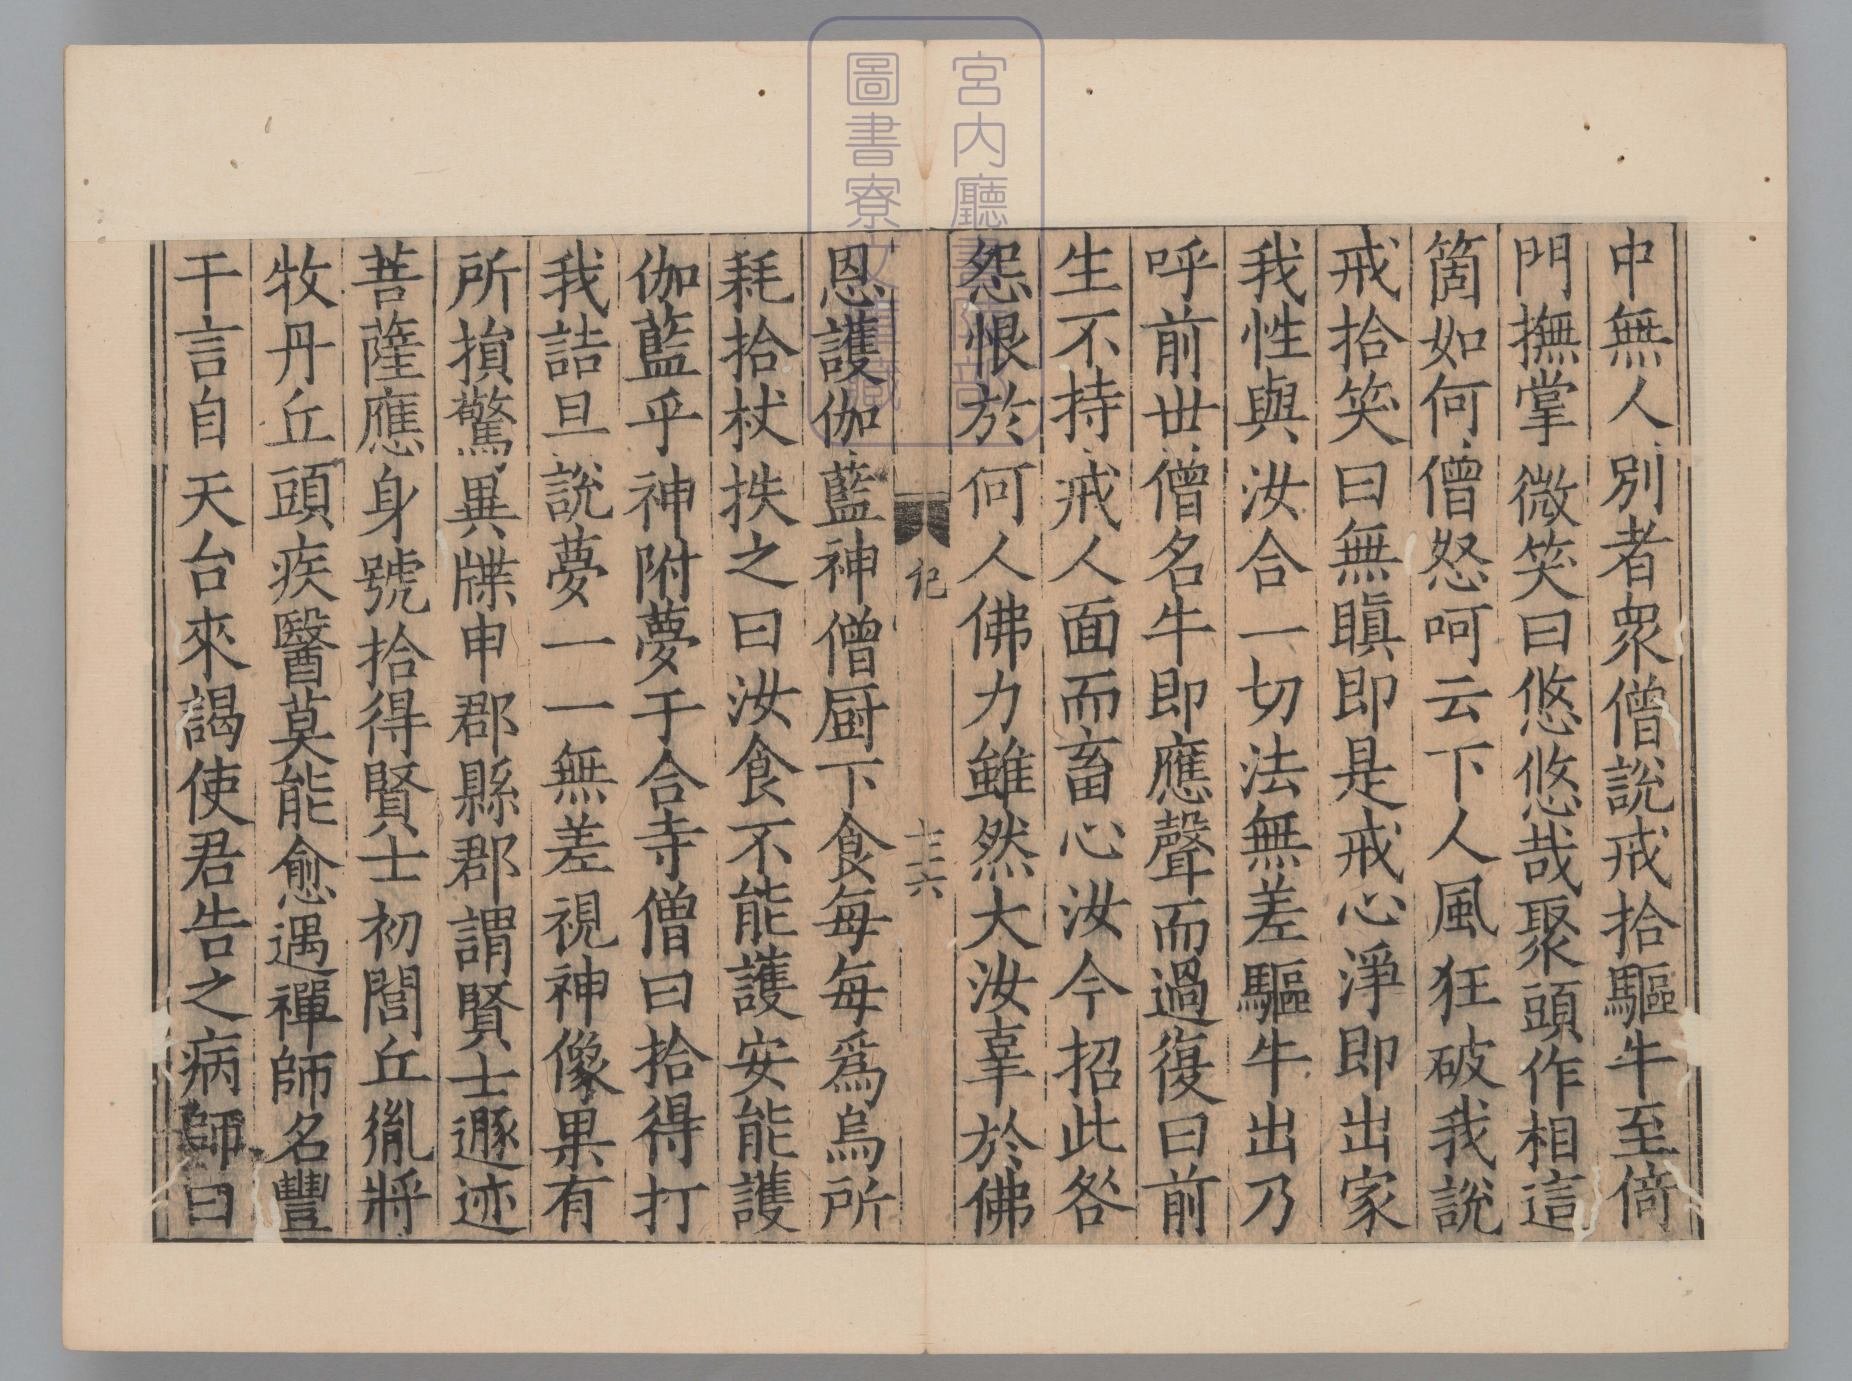 中無人別者衆僧說戒拾驅牛至倚
門撫掌微笑曰悠悠哉聚頭作相這
箇如何僧怒呵云下人風狂破我說
戒拾笑曰無瞋即是戒心淨即出家
我性與汝合一切法無差驅牛出乃
呼前世僧名牛即應聲而過復曰前
生不持戒人面而畜心汝今招此咎
怨恨於何人佛力雖然大汝辜於佛
記
十六
恩護伽藍神僧厨下食每每爲烏所
耗拾杖抶之曰汝食不能護安能護
伽藍乎神附夢于合寺僧曰拾得打
我詰旦說夢一一無差視神像果有
所損驚異牒申郡縣郡謂賢士遯迹
菩薩應身號拾得賢士初閭丘胤將
牧丹丘頭疾醫莫能愈遇禪師名豐
干言自天台來謁使君告之病師曰
宮内廳書陵部
圖書寮文庫藏